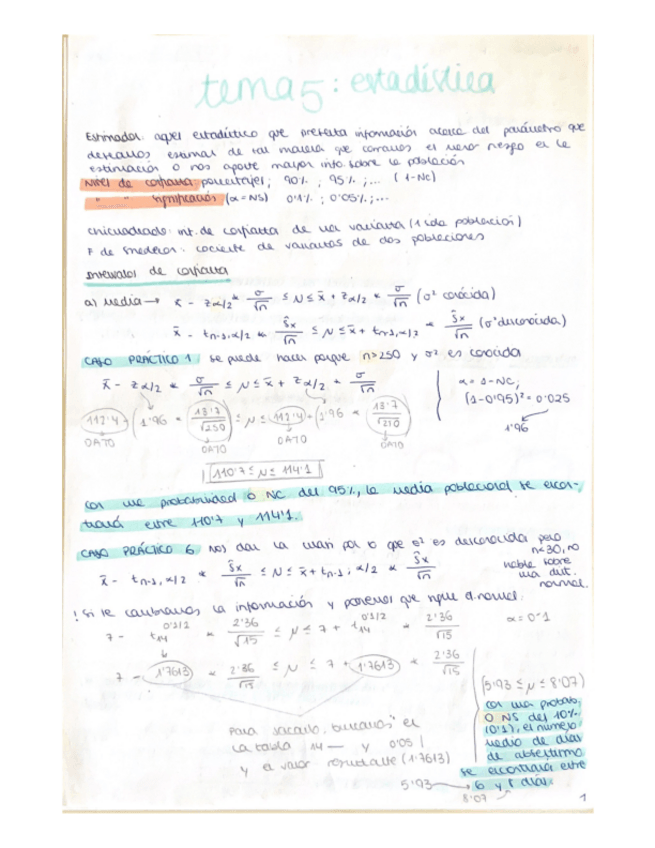 tema 5: estadística
Estimador: aquel estadístico que presenta información acerca del parámetro que
deseamos estimar de tal manera que corramos el menor riesgo en la
estimación o nos aporte mayor info. sobre la población
Nivel de confianza porcentajes; 90%; 95%;... (1-NC)
" " significación (α=NS) 0'1%; 0'05%;...
chicuadrado: int. de confianza de una varianza (1 sola población)
F de Snedecor: cociente de varianzas de dos poblaciones
Intervalos de confianza
a) Media → x̄ - zα/2 * σ/√n ≤ μ ≤ x̄ + zα/2 * σ/√n (σ² conocida)
x̄ - tn-1,α/2 * ŝx/√n ≤ μ ≤ x̄ + tn-1,α/2 * ŝx/√n (σ² desconocida)
CASO PRÁCTICO 1 se puede hacer porque n>250 y σ² es conocida
x̄ - zα/2 * σ/√n ≤ μ ≤ x̄ + zα/2 * σ/√n
α = 1-NC;
(1-0'95)² = 0'025
1'96
112'4 - (1'96 * 13'7/√250) ≤ μ ≤ 112'4 + (1'96 * 13'7/√250)
DATO DATO DATO DATO
110'7 ≤ μ ≤ 114'1
con una probabilidad o NC del 95%, la media poblacional se encon-
trará entre 110'7 y 114'1.
CASO PRÁCTICO 6 nos dan la por lo que σ² es desconocida pero
n<30, no
hable sobre
una dist.
normal.
x̄ - tn-1, α/2 * ŝx/√n ≤ μ ≤ x̄ + tn-1; α/2 * ŝx/√n
! si le cambiamos la información y ponemos que sigue d. normal:
7 - t14 0'1/2 * 2'36/√15 ≤ μ ≤ 7 + t14 0'1/2 * 2'36/√15
α = 0'1
7 - 1'7613 * 2'36/√15 ≤ μ ≤ 7 + 1'7613 * 2'36/√15
(5'93 ≤ μ ≤ 8'07)
con una probab.
o NS del 10%
(0'1), el número
medio de días
de absentismo
se encontrará entre
6 y 8 días.
Para sacarlo, buscamos en
la tabla 14 — y 0'05 |
y el valor resultante (1'7613)
5'93
8'07
1